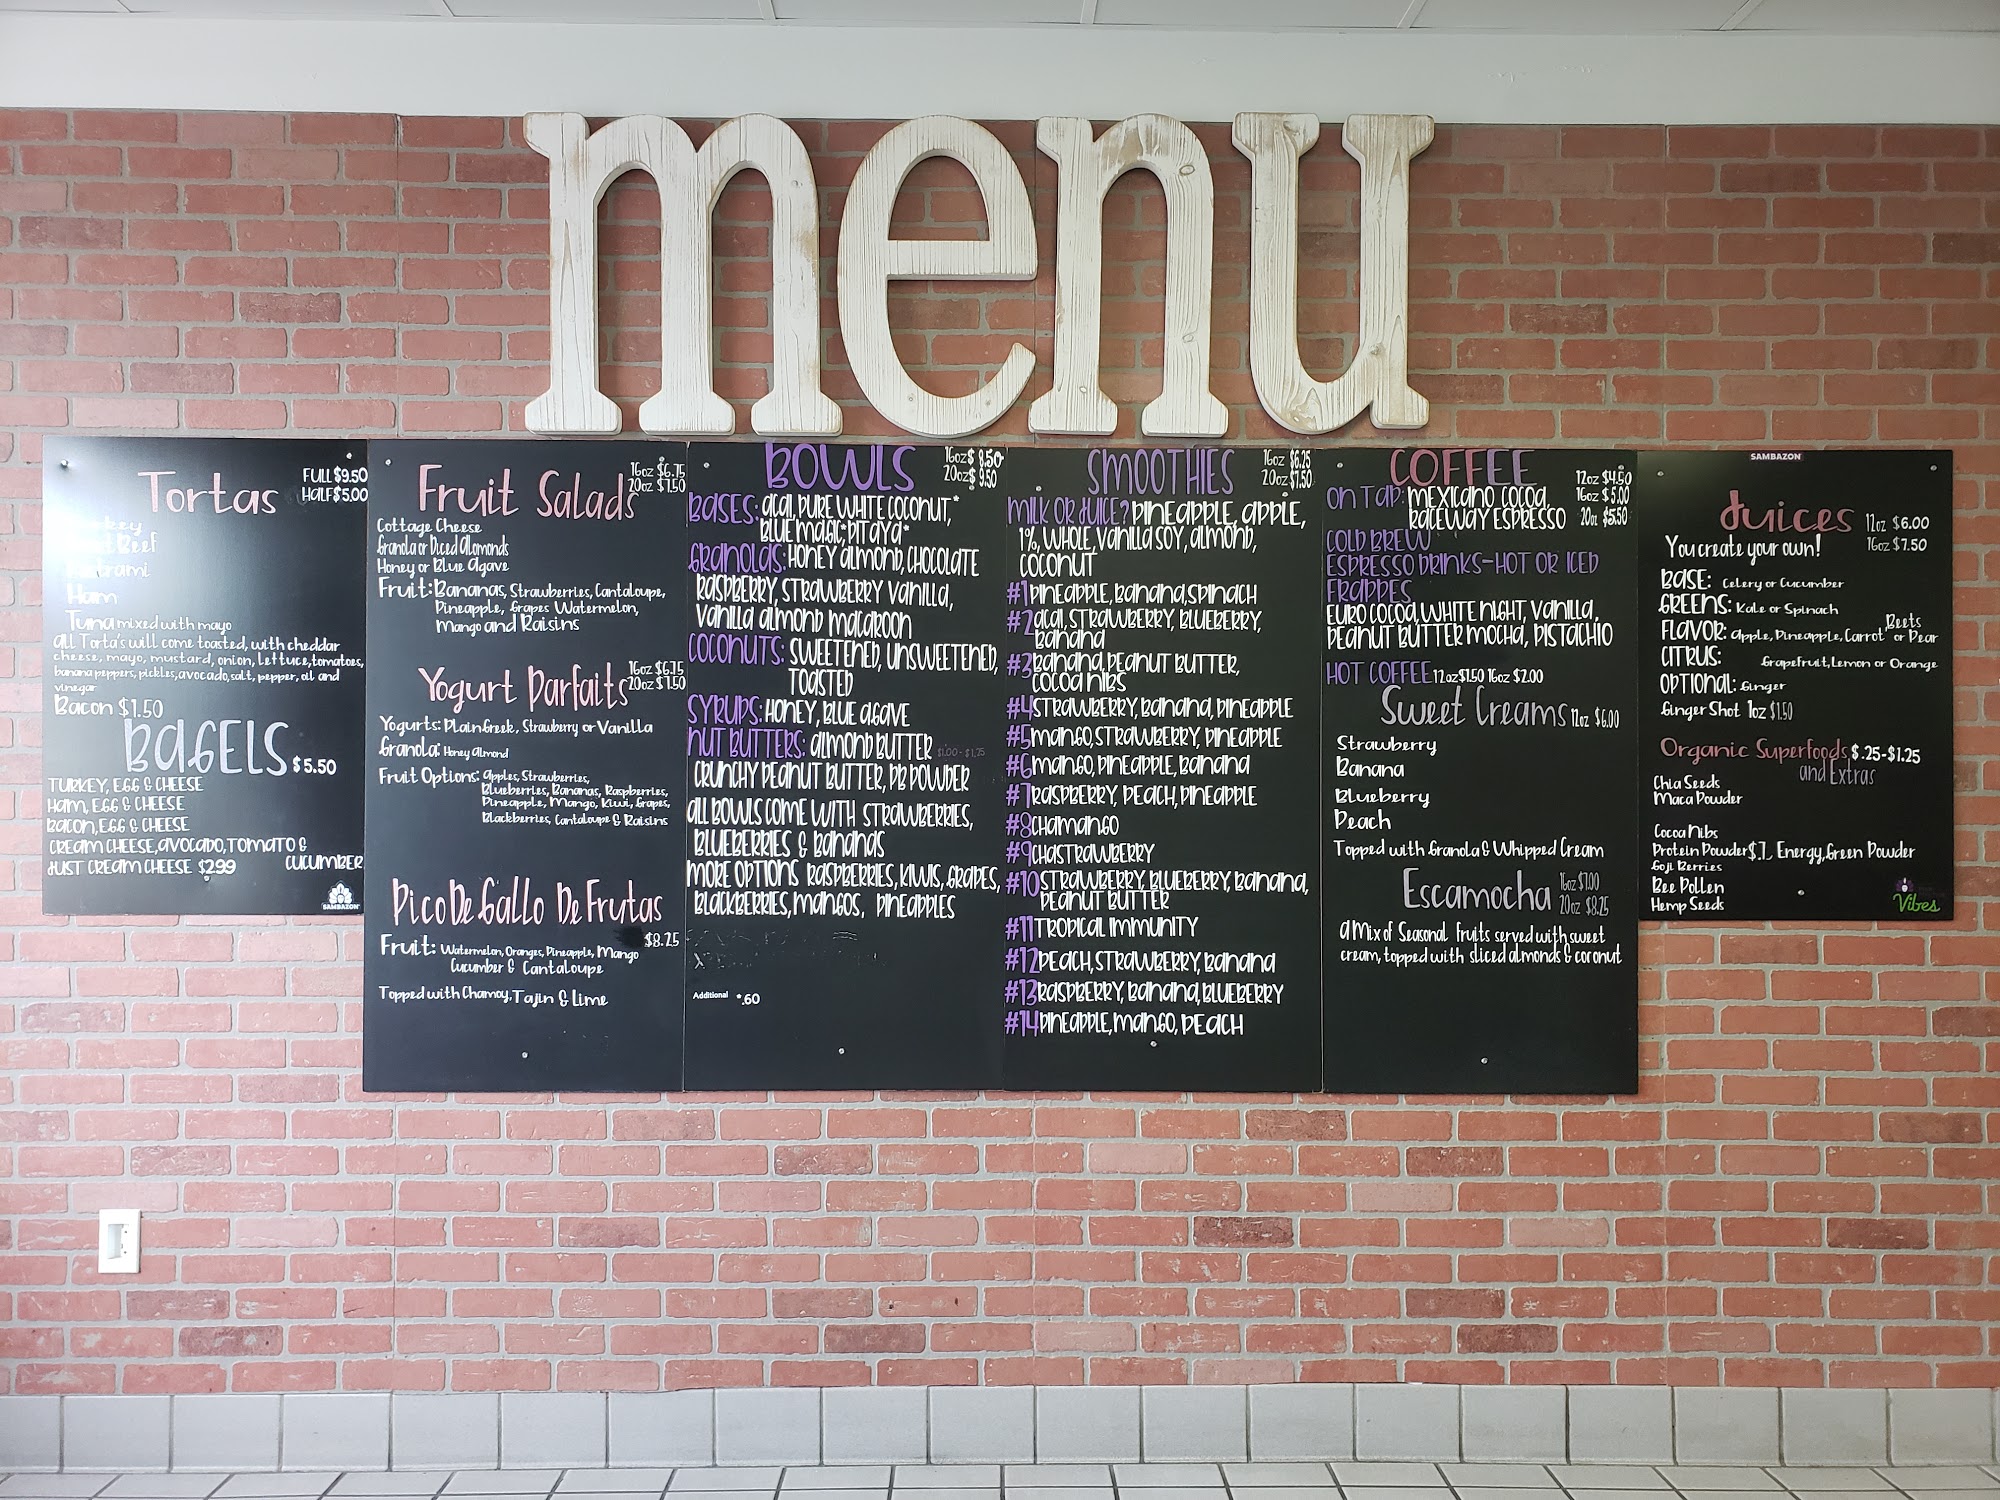 menu
Tortas
FULL $9.50
HALF $5.00
Ham
Tuna mixed with mayo
all Torta's will come toasted, with cheddar
cheese, mayo, mustard, onion, lettuce, tomatoes,
banana peppers, pickles, avocado, salt, pepper, oil and
vinegar
Bacon $1.50
BAGELS $5.50
TURKEY, EGG & CHEESE
HAM, EGG & CHEESE
BACON, EGG & CHEESE
CREAM CHEESE, AVOCADO, TOMATO &
CUCUMBER
JUST CREAM CHEESE $2.99
SAMBAZON
Fruit Salads
16oz $6.75
20oz $7.50
Cottage Cheese
Granola or Diced Almonds
Honey or Blue Agave
Fruit: Bananas, Strawberries, Cantaloupe,
Pineapple, Grapes Watermelon,
Mango and Raisins
Yogurt Parfaits
16oz $6.75
20oz $7.50
Yogurts: Plain Greek, Strawberry or Vanilla
Granola: Honey Almond
Fruit Options: Apples, Strawberries,
Blueberries, Bananas, Raspberries,
Pineapple, Mango, Kiwi, Grapes,
Blackberries, Cantaloupe & Raisins
Pico De Gallo De Frutas
$8.25
Fruit: Watermelon, Oranges, Pineapple, Mango
Cucumber & Cantaloupe
Topped with Chamoy, Tajin & Lime
BOWLS
16oz $8.50
20oz $9.50
BASES: ACAI, PURE WHITE COCONUT,*
BLUE MAGIC* PITAYA*
GRANOLAS: HONEY ALMOND, CHOCOLATE
RASPBERRY, STRAWBERRY VANILLA,
VANILLA ALMOND MACAROON
COCONUTS: SWEETENED, UNSWEETENED,
TOASTED
SYRUPS: HONEY, BLUE AGAVE
NUT BUTTERS: ALMOND BUTTER $1.00-$1.75
CRUNCHY PEANUT BUTTER, PB POWDER
ALL BOWLS COME WITH STRAWBERRIES,
BLUEBERRIES & BANANAS
MORE OPTIONS RASPBERRIES, KIWIS, GRAPES,
BLACKBERRIES, MANGOS, PINEAPPLES
Additional *.60
SMOOTHIES
16oz $6.25
20oz $7.50
MILK OR JUICE? PINEAPPLE, APPLE,
1%, WHOLE, VANILLA SOY, ALMOND,
COCONUT
#1 PINEAPPLE, BANANA, SPINACH
#2 ACAI, STRAWBERRY, BLUEBERRY,
BANANA
#3 BANANA, PEANUT BUTTER,
COCOA NIBS
#4 STRAWBERRY, BANANA, PINEAPPLE
#5 MANGO, STRAWBERRY, PINEAPPLE
#6 MANGO, PINEAPPLE, BANANA
#7 RASPBERRY, PEACH, PINEAPPLE
#8 CHAMANGO
#9 CHASTRAWBERRY
#10 STRAWBERRY, BLUEBERRY, BANANA,
PEANUT BUTTER
#11 TROPICAL IMMUNITY
#12 PEACH, STRAWBERRY, BANANA
#13 RASPBERRY, BANANA, BLUEBERRY
#14 PINEAPPLE, MANGO, PEACH
COFFEE
12oz $4.50
16oz $5.00
20oz $5.50
ON TAP: MEXICANO COCOA
RACEWAY ESPRESSO
COLD BREW
ESPRESSO DRINKS-HOT OR ICED
FRAPPES
EURO COCOA, WHITE NIGHT, VANILLA,
PEANUT BUTTER MOCHA, PISTACHIO
HOT COFFEE 12oz $1.50 16oz $2.00
Sweet Creams 12oz $6.00
Strawberry
Banana
Blueberry
Peach
Topped with Granola & Whipped Cream
Escamocha
16oz $7.00
20oz $8.25
A Mix of Seasonal fruits served with sweet
cream, topped with sliced almonds & coconut
SAMBAZON
Juices
12oz $6.00
16oz $7.50
You create your own!
BASE: Celery or Cucumber
GREENS: Kale or Spinach
Beets
FLAVOR: Apple, Pineapple, Carrot or Pear
CITRUS: Grapefruit, Lemon or Orange
OPTIONAL: Ginger
Ginger Shot 1oz $1.50
Organic Superfoods $.25-$1.25
and Extras
Chia Seeds
Maca Powder
Cocoa Nibs
Protein Powder $.1, Energy, Green Powder
Goji Berries
Bee Pollen
Hemp Seeds
Vibes